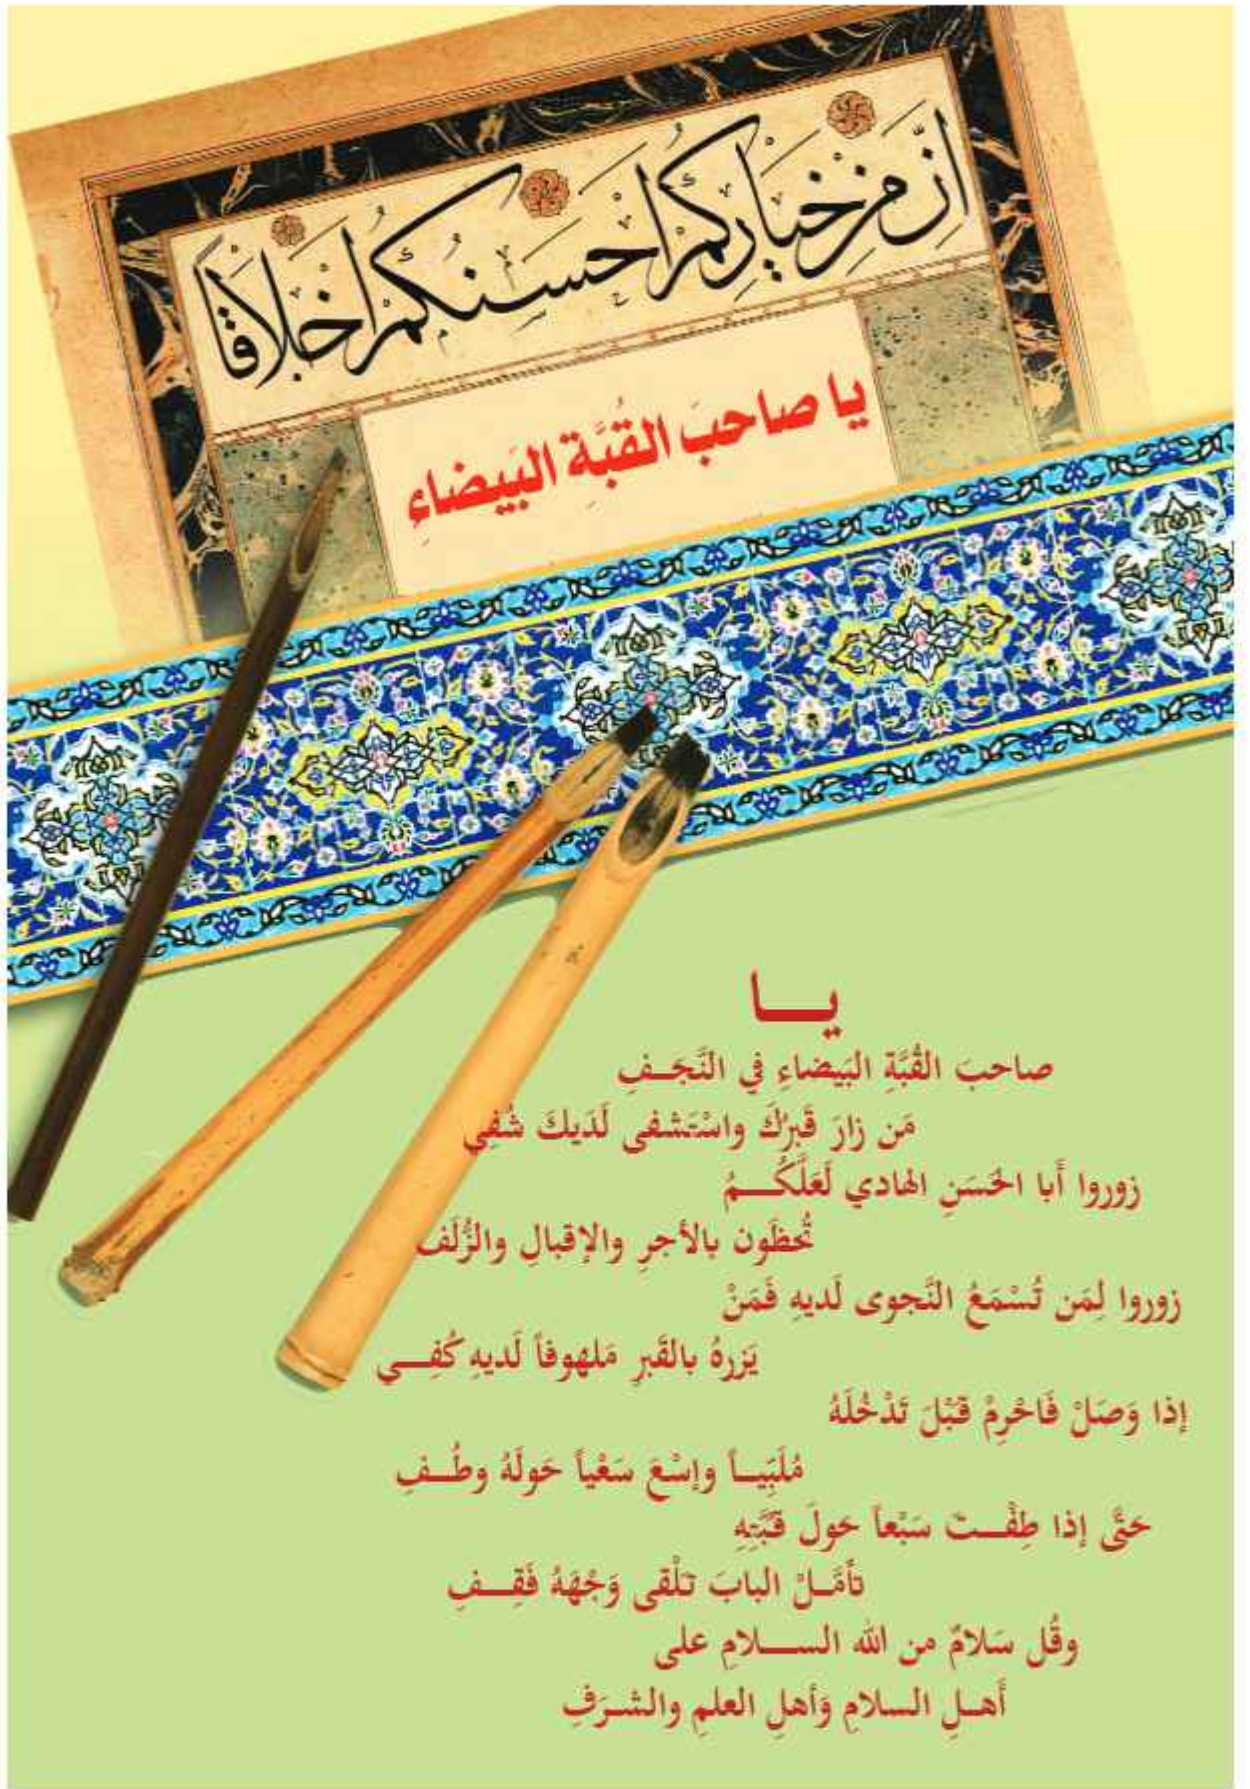 اِنَّ مِنْ خِيَارِكُمْ اَحْسَنُكُمْ اَخْلَاقًا
يا صاحبَ القُبَّةِ البَيضاءِ
يـــا
صاحبَ القُبَّةِ البَيضاءِ في النَّجَـفِ
مَن زارَ قَبرَكَ واسْتَشفى لَدَيكَ شُفِي
زوروا أَبا الحَسَنِ الهادي لَعَلَّكُـــمُ
تُحظَون بالأجرِ والإقبالِ والزُّلَفِ
زوروا لِمَن تُسْمَعُ النَّجوى لَديهِ فَمَنْ
يَزرهُ بالقَبرِ مَلهوفاً لَديهِ كُفِـــي
إذا وَصَلْ فَاحْرِمْ قَبْلَ تَدْخُلَهُ
مُلَبِّيـــاً وإسْعَ سَعْياً حَولَهُ وطُـــفِ
حَتَّى إذا طِفْـــتَ سَبْعاً حَولَ قبَّتِهِ
تأَمَّـلْ البابَ تَلْقى وَجْهَهُ فَقِـــفِ
وقُل سَلامٌ من الله الســـلامِ على
أَهـلِ السلامِ وَأهلِ العلمِ والشـرَفِ